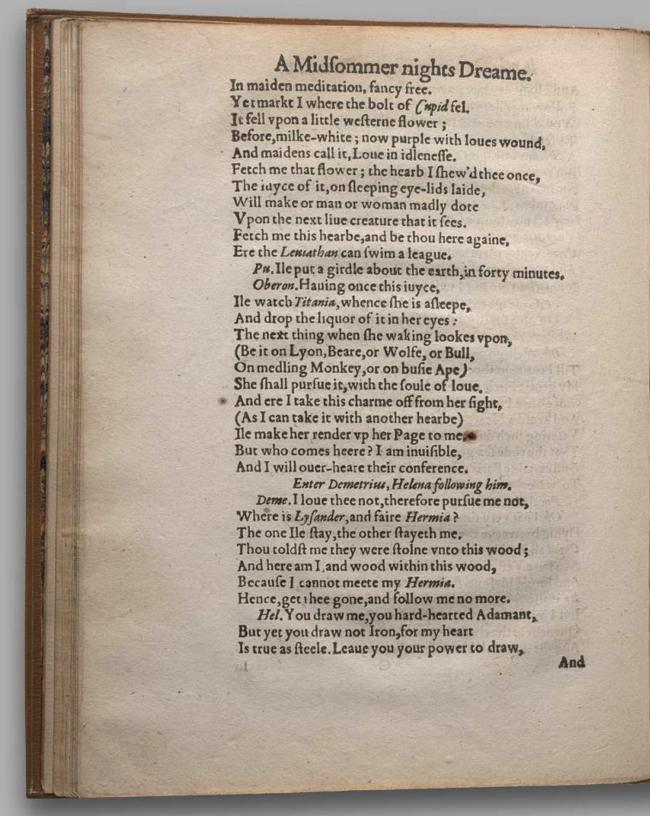 A Midsommer nights Dreame.
In maiden meditation, fancy free.
Yet markt I where the bolt of Cupid fel.
It fell vpon a little westerne flower ;
Before, milke-white ; now purple with loues wound,
And maidens call it, Loue in idlenesse.
Fetch me that flower ; the hearb I shew'd thee once,
The iuyce of it, on sleeping eye-lids laide,
Will make or man or woman madly dote
Vpon the next liue creature that it sees.
Fetch me this hearbe, and be thou here againe,
Ere the Leuiathan can swim a league.
Pu. Ile put a girdle about the earth, in forty minutes.
Oberon. Hauing once this iuyce,
Ile watch Titania, whence she is asleepe,
And drop the liquor of it in her eyes :
The next thing when she waking lookes vpon,
(Be it on Lyon, Beare, or Wolfe, or Bull,
On medling Monkey, or on busie Ape)
She shall pursue it, with the soule of loue.
And ere I take this charme off from her sight,
(As I can take it with another hearbe)
Ile make her render vp her Page to me.
But who comes heere? I am inuisible,
And I will ouer-heare their conference.
Enter Demetrius, Helena following him.
Deme. I loue thee not, therefore pursue me not,
Where is Lysander, and faire Hermia ?
The one Ile stay, the other stayeth me.
Thou toldst me they were stolne vnto this wood ;
And here am I, and wood within this wood,
Because I cannot meete my Hermia.
Hence, get thee gone, and follow me no more.
Hel. You draw me, you hard-hearted Adamant,
But yet you draw not Iron, for my heart
Is true as steele. Leaue you your power to draw,
And